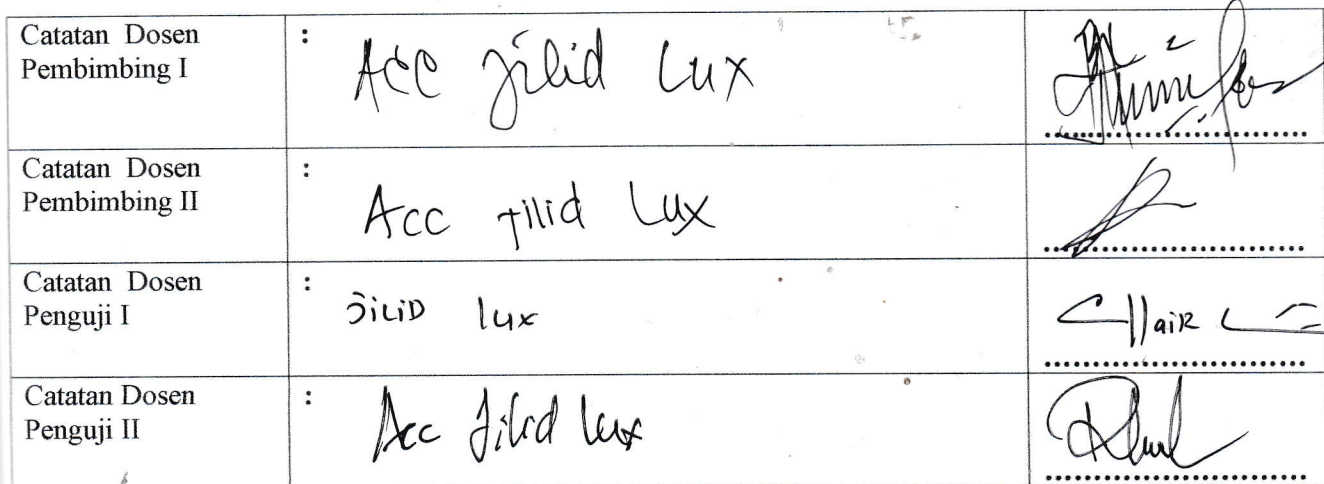 Catatan Dosen
Pembimbing I
: Acc Jilid Lux
Catatan Dosen
Pembimbing II
: Acc Jilid Lux
Catatan Dosen
Penguji I
: JiLiD lux
Catatan Dosen
Penguji II
: Acc Jilid lux